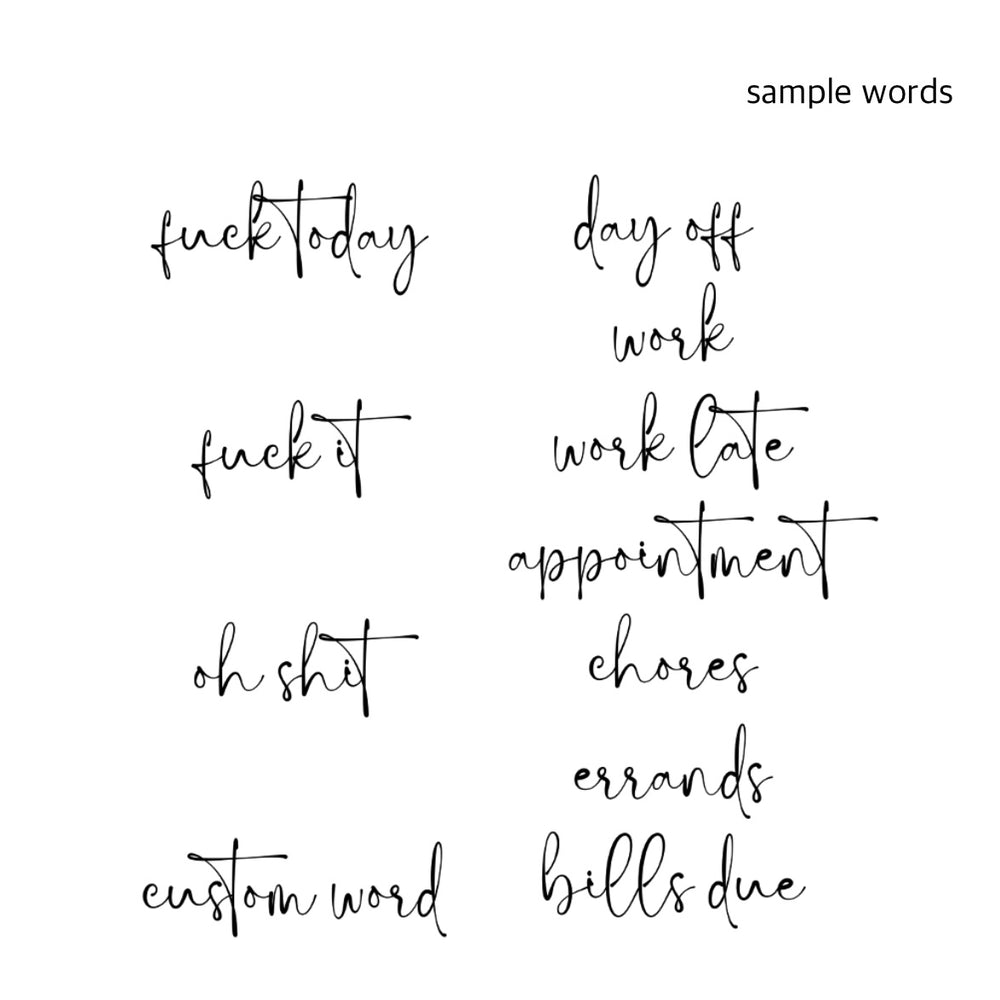 sample words
fuck today
fuck it
oh shit
custom word
day off
work
work late
appointment
chores
errands
bills due